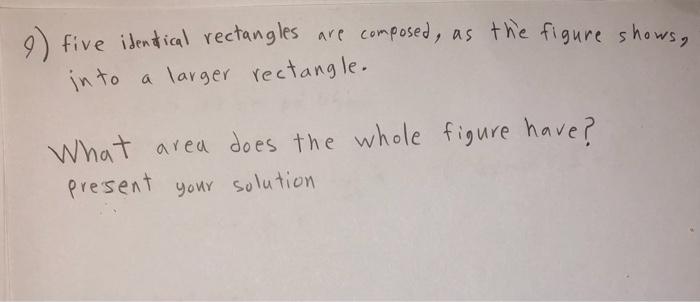 9) five identical rectangles are composed, as the figure shows,
into a larger rectangle.
What area does the whole figure have?
present your solution